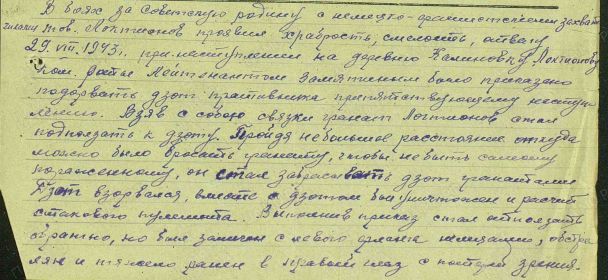 В боях за Советскую родину с немецко-фашистскими захват
чиками тов. Локтионов проявил храбрость, смелость, отвагу
29.VIII.1943г. при наступлении на деревню Калиновку Локтионову
Ком. роты Лейтенантом Замятиным было приказано
подорвать дзот противника препятствующему наступ
лению. Взяв с собою связки гранат Локтионов стал
подползать к дзоту. Пройдя небольшое расстояние откуда
можно было бросать гранату, чтобы не быть самому
пораженному, он стал забрасывать дзот гранатами
Дзот взорвался, вместе с дзотом был уничтожен и расчет
станкового пулемета. Выполнив приказ стал отползать
обратно, но был замечен с левого фланга немцами, обстре
лян и тяжело ранен в правый глаз с потерей зрения.